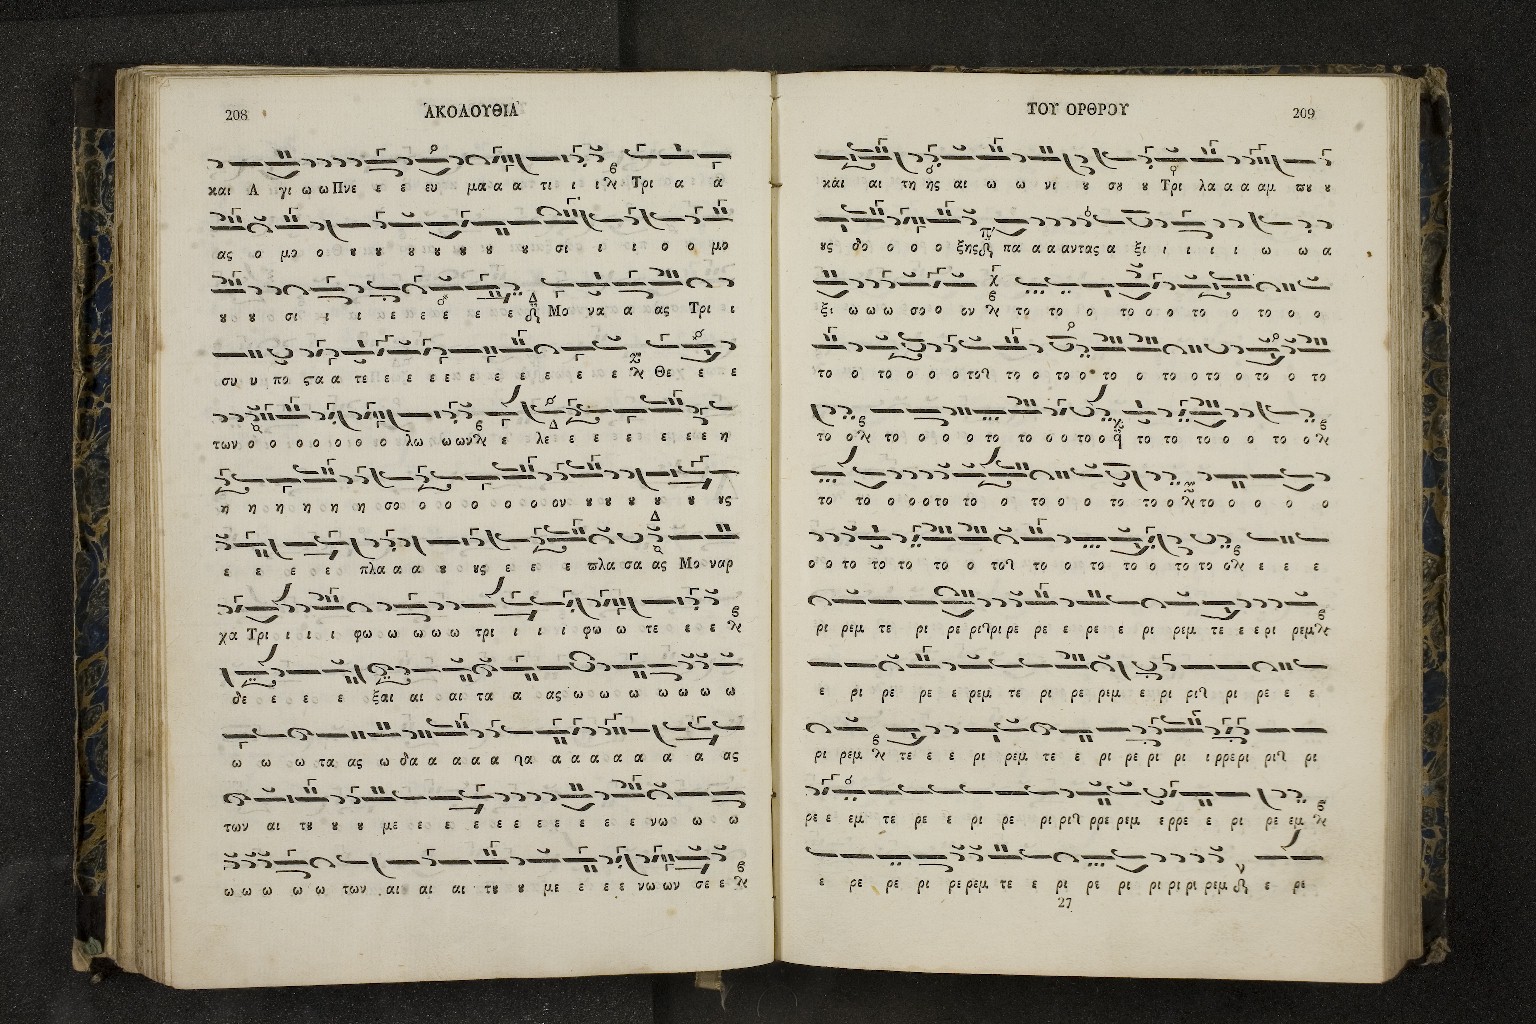 208
ἈΚΟΛΟΥΘΙΑ
και Α γι ω ω Πνε ε ε ευ μα α α τι ι ι Τρι α ά
ας ο μο ο ȣ ȣ ȣ ȣ ȣ ȣ ȣ ȣ σι ι ι ο ο μο
ȣ ȣ σι ι ι ε ε ε ε ε ε Μο να α ας Τρι ι
συ υ πο ϛα α τε ε ε ε ε ε ε ε ε ε ε ε Θε ε ε
των ο ο ο ο ο ο ο λω ω ων ε λε ε ε ε ε ε ε ε η
η η η η η η σο ο ο ο ο ο ο ον ȣ ȣ ȣ ȣ ȣ ȣς
ε ε ε ε πλα α α ȣ ȣς ε ε ε ϖλα σα ας Μο ναρ
χα Τρι ι ι ι φω ω ω ω ω τρι ι ι ι φω ω τε ε ε
δε ε ε ε ξαι αι αι τα α ας ω ω ω ω ω ω ω
ω ω ω τα ας ω δα α α α α α α α α α α α ας
των αι τȣ ȣ ȣ με ε ε ε ε ε ε ε ε ε ε νω ω ω
ω ω ω ω ω των αι αι αι τȣ ȣ με ε ε ε νω ων σε ε
ΤΟΥ ΟΡΘΡΟΥ
209
κὰι αι τη ης αι ω ω νι ȣ σȣ ȣ Τρι λα α α αμ ϖȣ ȣ
ȣς δο ο ο ο ξης πα α α αντας α ξι ι ι ι ι ω ω α
ξι ω ω ω σο ο ον το το ο το ο ο το ο το ο ο
το ο το ο ο ο το το ο το ο το ο το ο το ο το
το ο το ο ο ο το το ο ο το ο το το το ο ο το ο
το το ο ο ο το το ο το ο ο το το ο το ο ο ο ο
ο ο το το το το ο το το ο το το ο το το ο ε ε ε
ρι ρεμ τε ρι ρε ρι ρι ρε ρε ε ρε ε ρι ρεμ τε ε ε ρι ρεμ
ε ρι ρε ρε ε ρεμ τε ρι ρε ρεμ ε ρι ρι ρι ρε ε ε
ρι ρεμ τε ε ε ρι ρεμ τε ε ρι ρε ρι ρι ι ρρε ρι ρι ρι
ρε ε εμ τε ρε ε ρι ρε ρι ρι ρρε ρεμ ε ρρε ε ρι ρε εμ
ε ρε ρε ρι ρε ρεμ τε ε ρι ρε ρι ρι ρι ρι ρεμ ε ρε
27